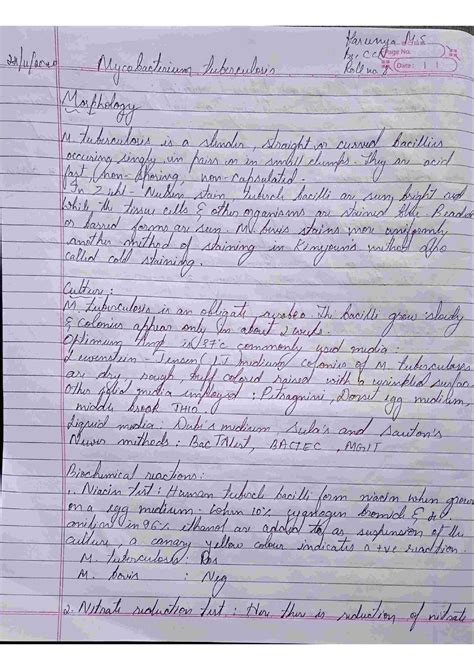 Karunya M.S
Page No.
Roll no. 8
Date: | |
Mycobacterium tuberculosis
Morphology
M. tuberculosis is a slender, straight or curved bacillies
occuring singly, in pairs or in small clumps. They are acid
fast, non-sporing, non-capsulated.
In Ziehl-Neelsen stain tubercle bacilli are seen bright red
while the tissue cells & other organisms are stained blue. Beaded
or barred forms are seen. M. bovis stains more uniformly
another method of staining is Kinyoun's method also
called cold staining.
Culture:
M. tuberculosis is an obligate aerobe. The bacilli grow slowly
& colonies appear only in about 2 weeks.
Optimum temp is 37°c commonly used media:
Lowenstein - Jensen (LJ) medium colonies of M. tuberculoses
are dry, rough, buff colored raised with a wrinkled surface
Other solid media employed: Petragnini, Dorset egg medium,
middle brook 7H10.
Liquid media: Dubo's medium Sula's and Sauton's
Newer methods: BacTAlert, BACTEC, MGIT
Biochemical reactions:
1. Niacin test: Human tubercle bacilli form niacin when grown
on a egg medium. when 10% cynogen bromide &
aniline in 96% ethanol are added to as suspension of the
culture, a canary yellow colour indicates a +ve reaction.
M. tuberculosis: Pos
M. bovis : Neg
2. Nitrate reduction test: Here there is reduction of nitrate